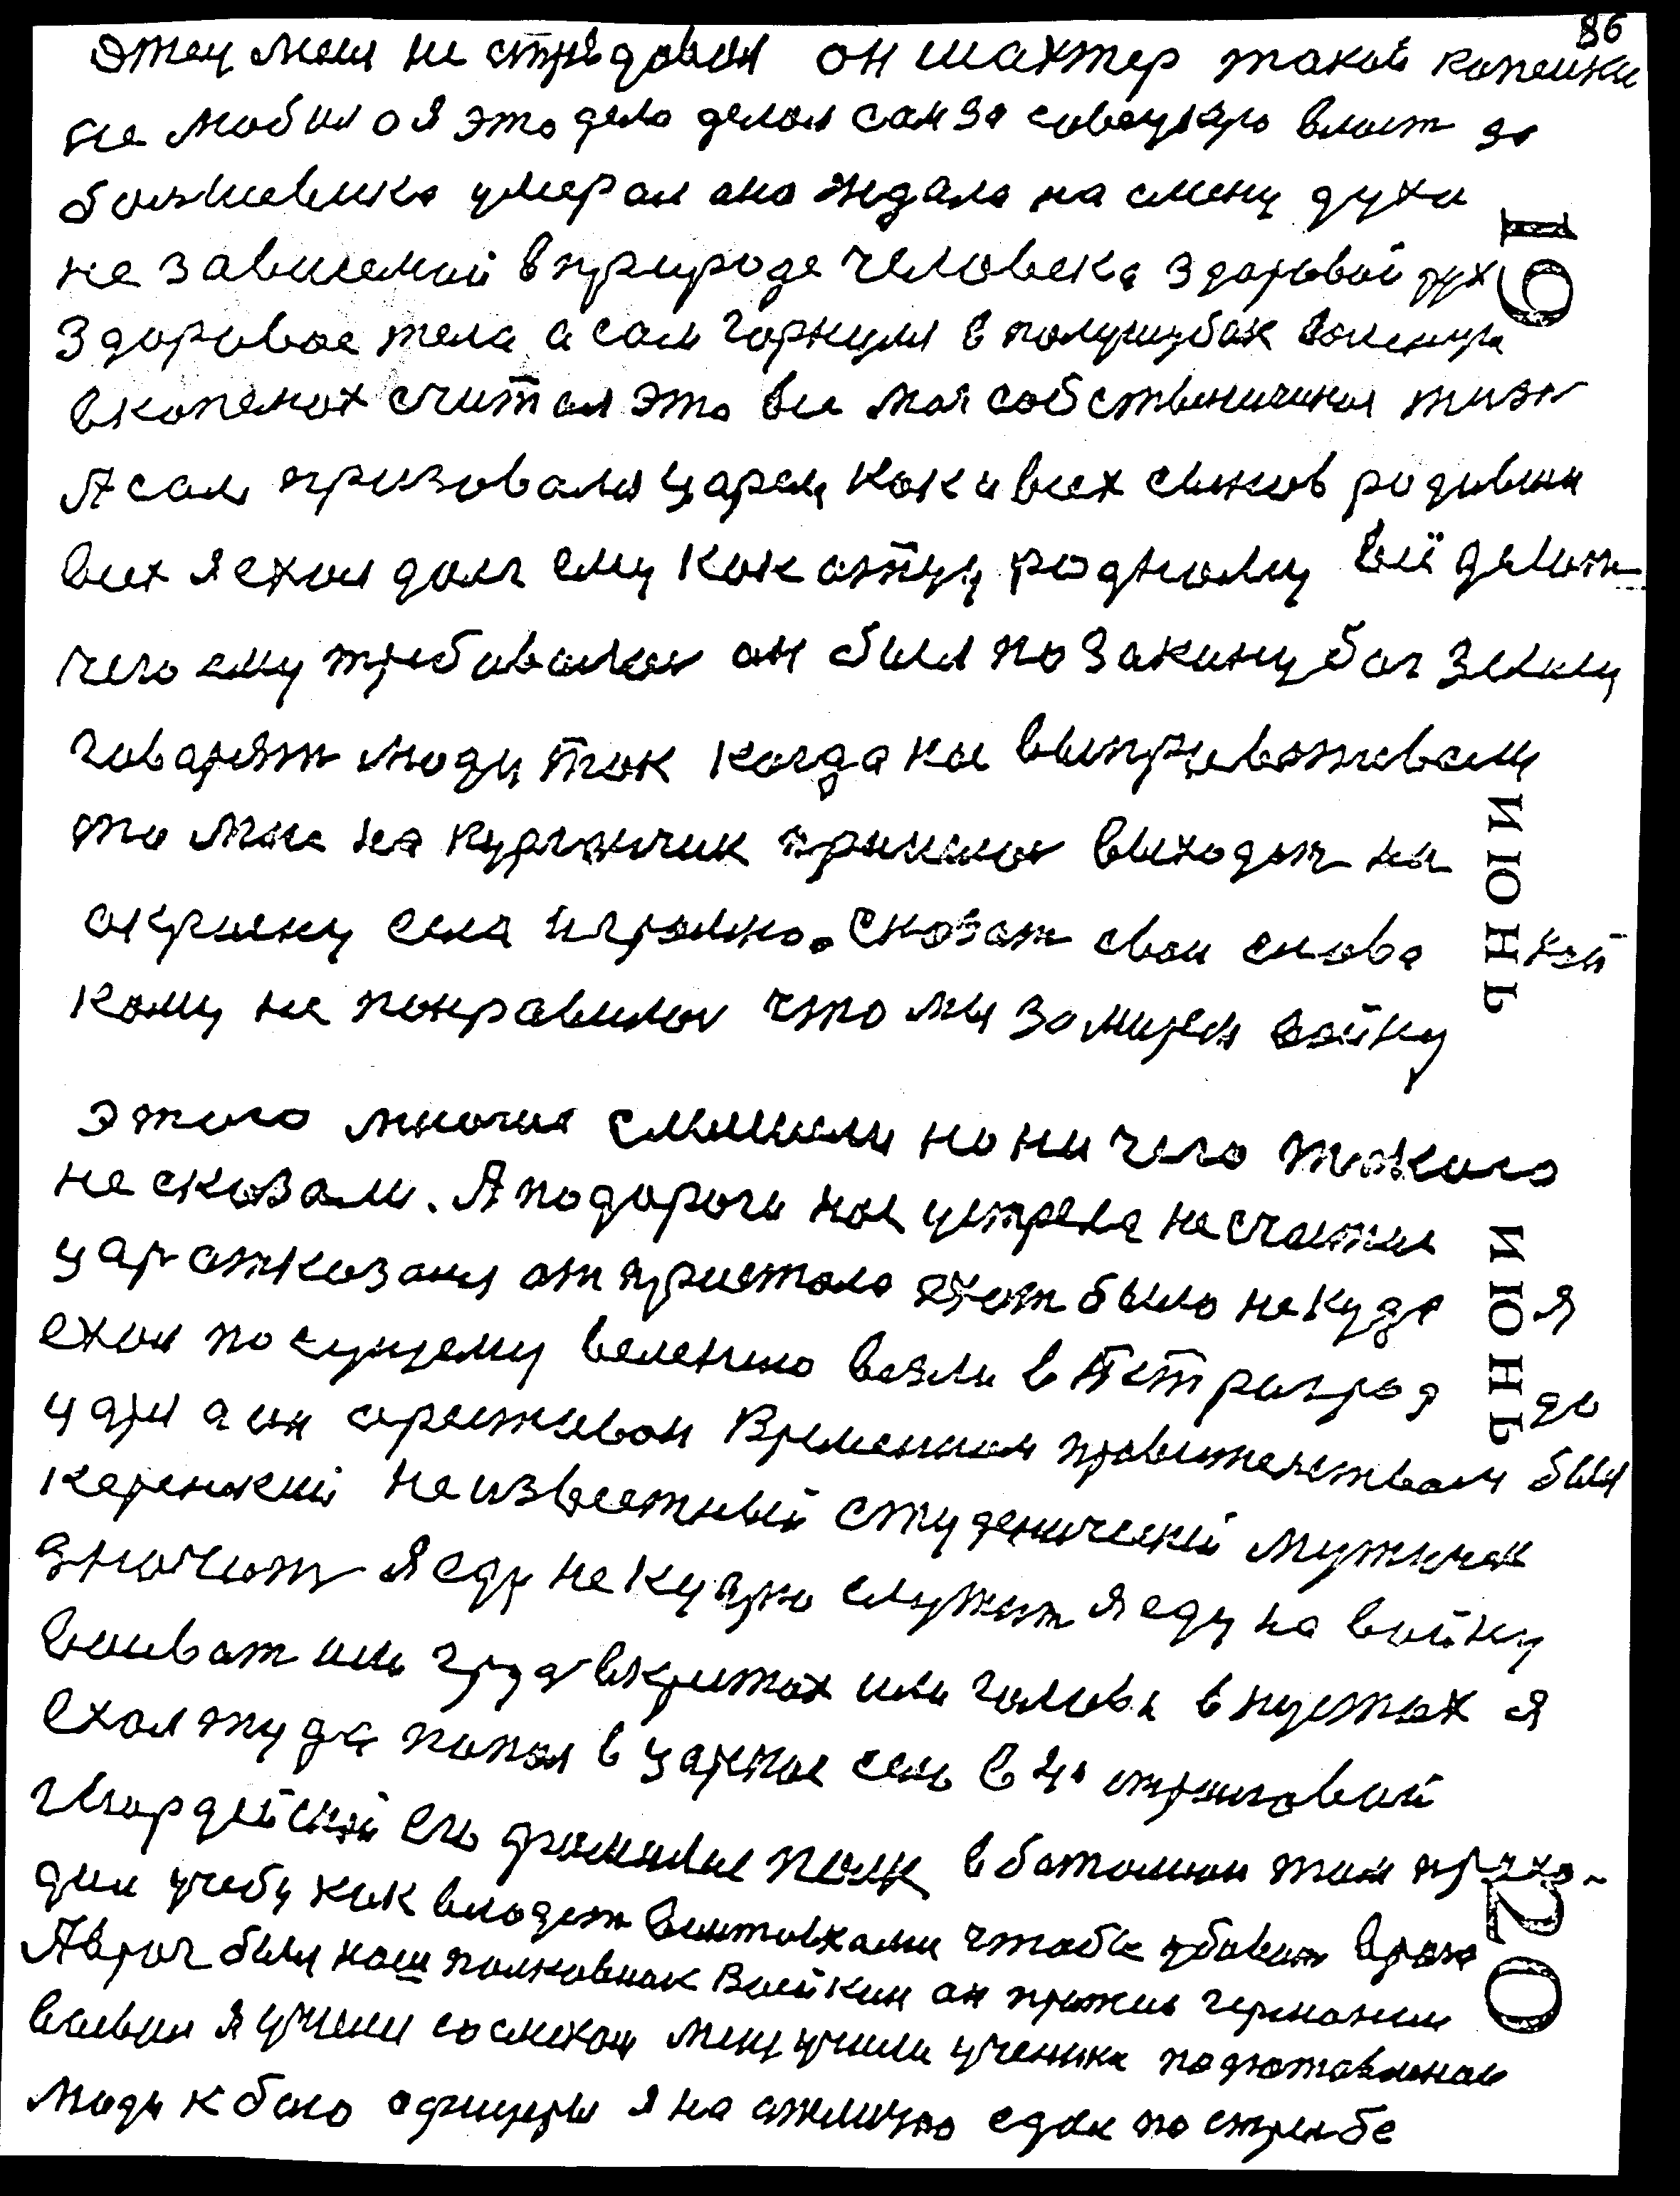 86
Отец меня не страдовал он шахтер такой копейки
не любил а я это дело делал сам за советскую власт за
большевика умерал она ждала на смену духа
не зависемой в природе человека здоровой дух
19
здоровое тела а сам горнулся в полушубак
в копейках считал это все моя собственичиная жизн
А сам призовался царем как и всех сынов родивши
всех я ехал долг ему как отцу родному всё делат
чего ему требовалось он был по закону бог земли
говарят люди так когда нас выпровожевали
то мне на курганчик пришлос выходит на
окраину села и громко сказат свои слова кой
ИЮНЬ
кому не понравилос что мы замирем войну
этого многие слышели но ни чего такого
не сказали. А по дороги нас устрела несчастие
цар отказался от пристола ехат было не куда я
ИЮНЬ
ехал по сущему велению везли в Петраград до
царя а он арестован Временным правительствам был
керенский неизвестный студенический мужичек
значит я еду не к царю служит я еду на войну
воиват или груд в крестах или голова в кустах я
ехал туда попал в царское село в 4й стрелковый
гвардейский его фамилие полк в баталион там прахо-
дил учебу как владет винтовками чтобы убиват врага
20
А враг был наш полковник Вейкин он против германии
воевал я учился со смехом меня учили ученика подготавленае
люди к бою офицеры я на отлично сдал по стрельбе